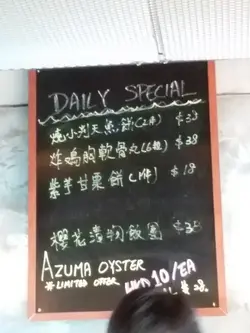 DAILY SPECIAL
燒小判天魚餅(2件) $38
炸鳴胸軟骨丸(6粒) $38
紫芋甘栗餅(1件) $18
櫻花漬物飯團 $38
AZUMA OYSTER
*LIMITED OFFER HKD 10/EA